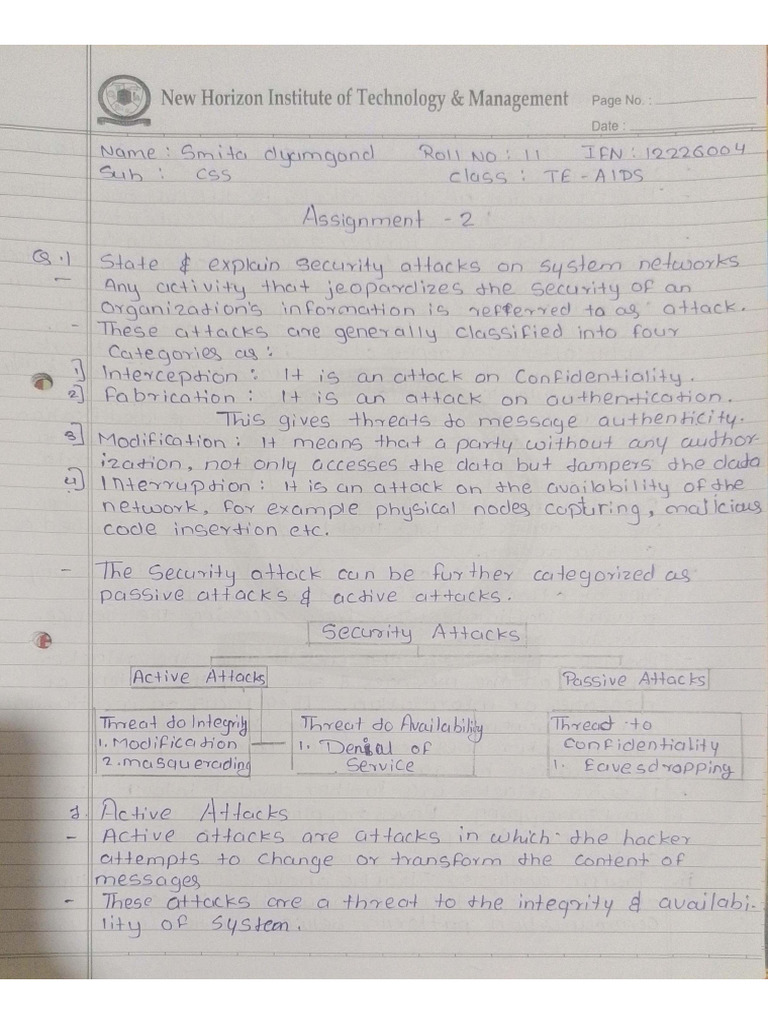 New Horizon Institute of Technology & Management Page No. :
Date :
Name : Smita dyamgond Roll NO : 11 IEN : 12226004
Sub : CSS Class : TE - AIDS
Assignment - 2
Q.1 State & explain security attacks on system networks
- Any activity that jeopardizes the security of an
organization's information is referred to as attack.
- These attacks are generally classified into four
Categories as :
1] Interception : It is an attack on Confidentiality.
2] Fabrication : It is an attack on authentication.
This gives threats to message authenticity.
3] Modification : It means that a party without any author
ization, not only accesses the data but tampers the data
4] Interruption : It is an attack on the availability of the
network, for example physical nodes capturing, malicious
code insertion etc.
- The Security attack can be further categorized as
passive attacks & active attacks.
Security Attacks
Active Attacks Passive Attacks
Threat to Integrity Threat to Availability Thread to
1. Modification 1. Denial of Confidentiality
2. masquerading Service 1. Eavesdropping
1. Active Attacks
- Active attacks are attacks in which the hacker
attempts to change or transform the content of
messages
- These attacks are a threat to the integrity & availabi-
lity of system.